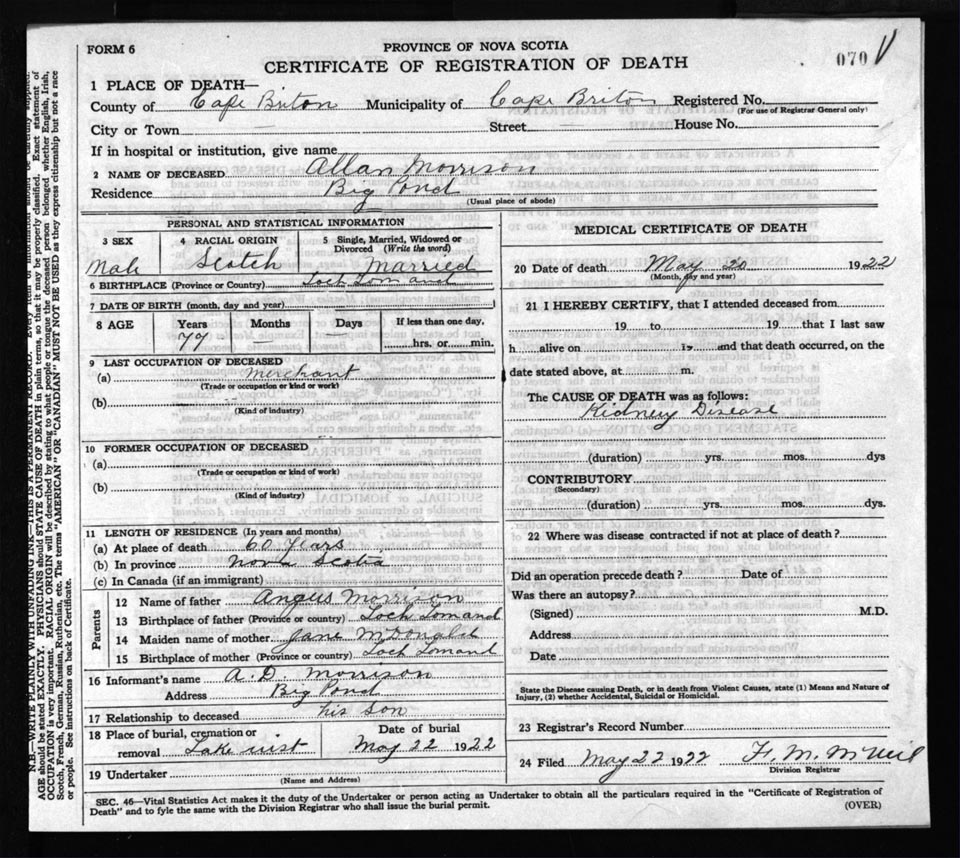 FORM 6
PROVINCE OF NOVA SCOTIA
CERTIFICATE OF REGISTRATION OF DEATH
070
1 PLACE OF DEATH—
County of Cape Briton Municipality of Cape Briton Registered No.
(For use of Registrar General only)
City or Town — Street — House No.
If in hospital or institution, give name
2 NAME OF DECEASED Allan Morrison
Residence Big Pond
(Usual place of abode)
PERSONAL AND STATISTICAL INFORMATION
3 SEX 4 RACIAL ORIGIN 5 Single, Married, Widowed or Divorced (Write the word)
Male Scotch Married
6 BIRTHPLACE (Province or Country) Loch Lomand
7 DATE OF BIRTH (month, day and year)
8 AGE Years Months Days If less than one day,
77 — hrs. or min.
9 LAST OCCUPATION OF DECEASED
(a) merchant
(Trade or occupation or kind or work)
(b)
(Kind of industry)
10 FORMER OCCUPATION OF DECEASED
(a)
(Trade or occupation or kind of work)
(b)
(Kind of industry)
11 LENGTH OF RESIDENCE (In years and months)
(a) At place of death 60 years
(b) In province Nova Scotia
(c) In Canada (if an immigrant)
Parents
12 Name of father Angus Morrison
13 Birthplace of father (Province or country) Loch Lomand
14 Maiden name of mother Jane McDonald
15 Birthplace of mother (Province or country) Loch Lomand
16 Informant's name A. D. Morrison
Address Big Pond
17 Relationship to deceased his son
18 Place of burial, cremation or Date of burial
removal Lake uist May 22 1922
19 Undertaker
(Name and Address)
MEDICAL CERTIFICATE OF DEATH
20 Date of death May 20 1922
(Month, day and year)
21 I HEREBY CERTIFY, that I attended deceased from
19 to 19 that I last saw
h alive on 19 and that death occurred, on the
date stated above, at m.
The CAUSE OF DEATH was as follows:
Kidney Disease
(duration) yrs. mos. dys
CONTRIBUTORY
(Secondary)
(duration) yrs. mos. dys.
22 Where was disease contracted if not at place of death?
Did an operation precede death? Date of
Was there an autopsy?
(Signed) M.D.
Address
Date
State the Disease causing Death, or in death from Violent Causes, state (1) Means and Nature of
Injury, (2) whether Accidental, Suicidal or Homicidal.
23 Registrar's Record Number
24 Filed May 22 1922 H. M. McNeil
Division Registrar
SEC. 46—Vital Statistics Act makes it the duty of the Undertaker or person acting as Undertaker to obtain all the particulars required in the "Certificate of Registration of
Death" and to fyle the same with the Division Registrar who shall issue the burial permit.
(OVER)
N.B.—WRITE PLAINLY WITH UNFADING INK—THIS IS A PERMANENT RECORD. Every item of information should be carefully supplied.
AGE should be stated EXACTLY. PHYSICIANS should STATE CAUSE OF DEATH in plain terms, so that it may be properly classified. Exact statement of
OCCUPATION is very important. RACIAL ORIGIN will be described by stating to what people or tongue the deceased person belonged, whether English, Irish,
Scotch, French, German, Russian, Ruthenian, etc. The terms "AMERICAN" OR "CANADIAN" MUST NOT BE USED as they express citizenship but not a race
or people. See instructions on back of Certificate.